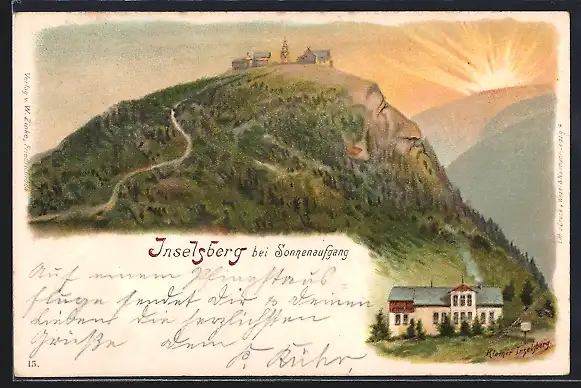 Verlag v. W. Zinke, Friedrichroda
Inselsberg bei Sonnenaufgang
Auf einem Pfingstaus-
fluge sendet Dir & Deinen
Lieben die herzlichsten
Grüße Dein
Kühr
Kleiner Inselsberg.
15.